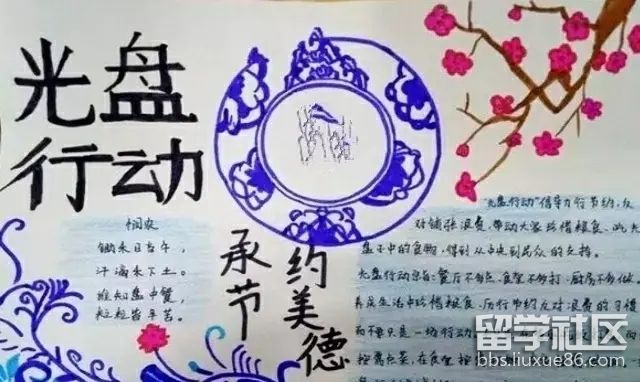 光盘
行动
悯农
锄禾日当午，
汗滴禾下土。
谁知盘中餐，
粒粒皆辛苦。
承节
约美德
"光盘行动"倡导厉行节约，反
对铺张浪费，带动大家珍惜粮食
盘中的食物，得到从中央到民众的支持。
光盘行动宗旨：餐厅不多点，食堂不多打，厨房不多做
养成生活中珍惜粮食，厉行节约反对浪费的习惯
而不只是一场行动
按需点菜，在食堂按
留学社区
bbs.liuxue86.com